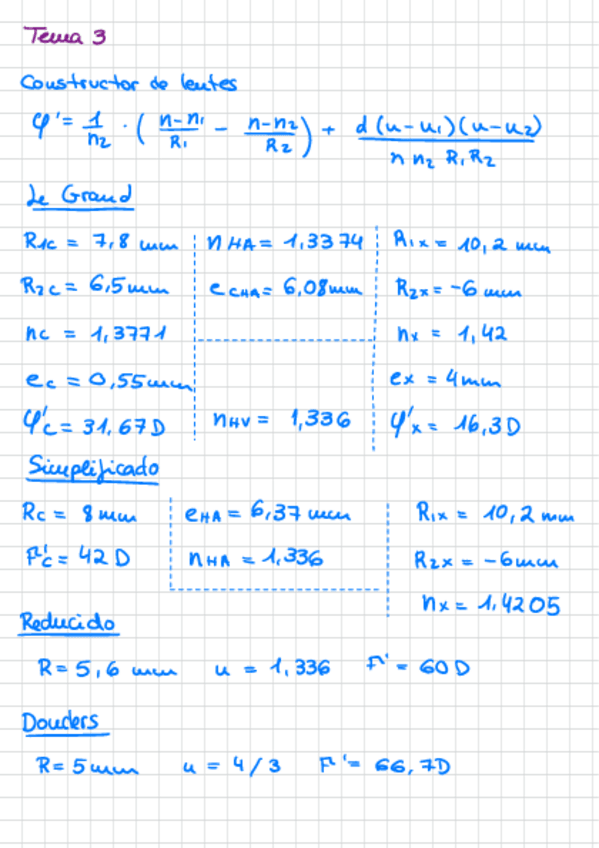 Tema 3
Constructor de lentes
φ' = 1/n2 · ( n-n1/R1 - n-n2/R2 ) + d(n-n1)(n-n2)/n n2 R1 R2
Le Grand
R1c = 7,8 mm nHA = 1,3374 R1x = 10,2 mm
R2c = 6,5 mm eCHA = 6,08mm R2x = -6 mm
nc = 1,3771 nx = 1,42
ec = 0,55 mm ex = 4mm
φ'c = 31,67D nHV = 1,336 φ'x = 16,3D
Simplificado
Rc = 8 mm eHA = 6,37 mm R1x = 10,2 mm
F'c = 42 D nHA = 1,336 R2x = -6mm
nx = 1,4205
Reducido
R = 5,6 mm n = 1,336 F' = 60D
Donders
R = 5mm n = 4/3 F' = 66,7D